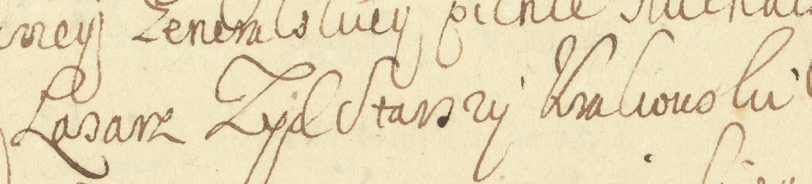 Zeneralskiey pilnie
Lazarz Zyd Starszy Krakowski